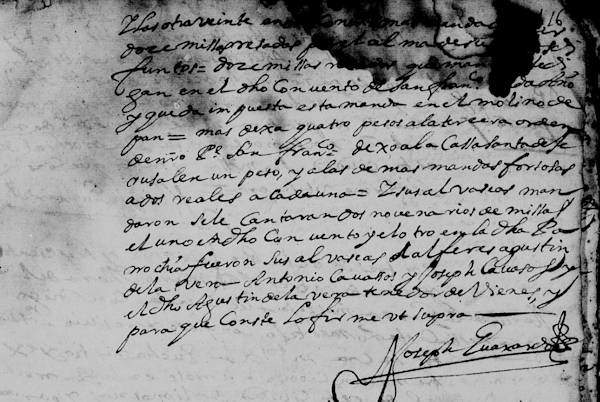 Y las otra veinte en
doze missas resadas por el alma de su
funtos = doze missas resadas que mando se di
gan en el dho Convento de San fran.co
y queda impuesta esta manda en el molino de
pan = mas dexa quatro pesos a la tercera orden
de nro Pe. San Fran.co dexo a la Cassa santa de Je
rusalen un peso, y a las demas mandas forsosas
a dos reales a cada una = Y sus alvaseas man
daron se le Cantaran dos novenarios de missas
el uno en dho Convento y el otro en la dha Pa
rrochia fueron sus alvaseas el alferes agustin
de la vera Antonio Cavasos y Joseph Cavasos y
el dho Agustin de la vera tenedor de Vienes, y
para que Conste lo firme vt supra
Joseph Guaxardo